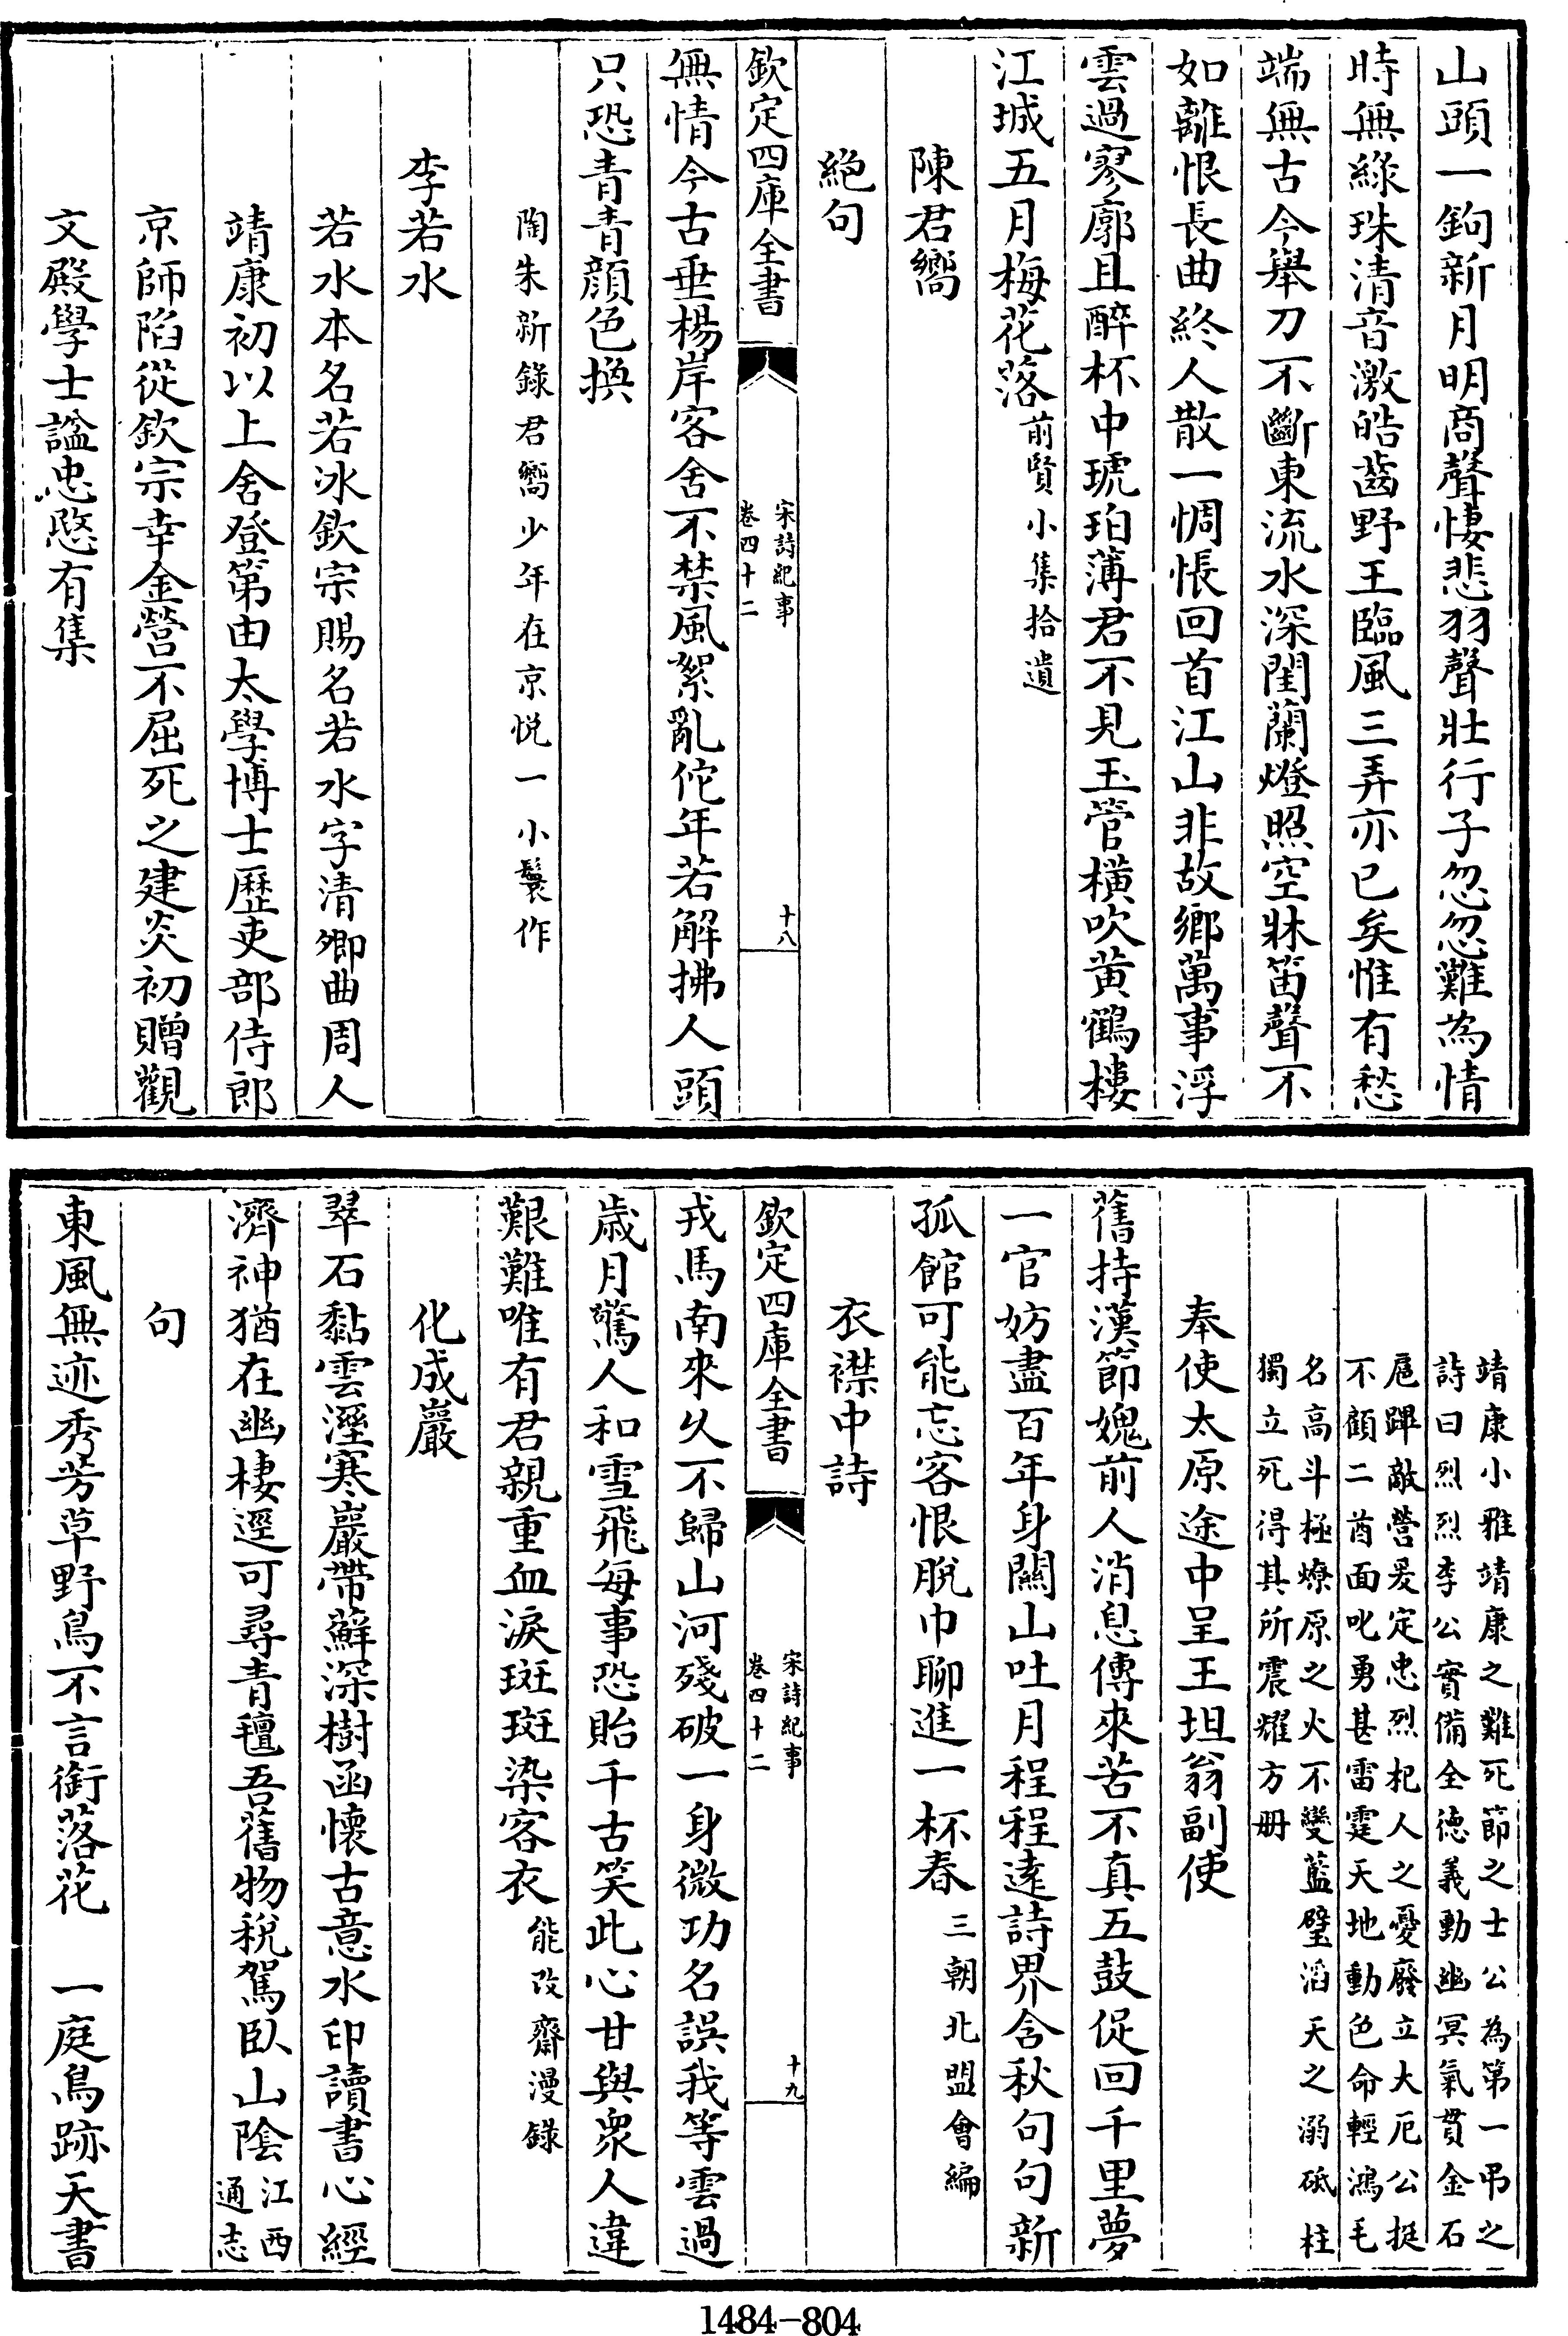 山頭一鉤新月明商聲悽悲羽聲壯行子忽忽難為情
時無綠珠清音激皓齒野王臨風三弄亦已矣惟有愁
端無古今舉刀不斷東流水深閨蘭燈照空牀笛聲不
如離恨長曲終人散一惆悵回首江山非故鄉萬事浮
雲過寥廓且醉杯中琥珀薄君不見玉管橫吹黄鶴樓
江城五月梅花落前賢小集拾遺
陳君嚮
絕句
欽定四庫全書
宋詩紀事
卷四十二
十八
無情今古垂楊岸客舍不禁風絮亂佗年若解拂人頭
只恐青青顔色換
陶朱新錄君嚮少年在京悅一小鬟作
李若水
若水本名若冰欽宗賜名若水字清卿曲周人
靖康初以上舍登第由太學博士歷吏部侍郎
京師陷從欽宗幸金營不屈死之建炎初贈觀
文殿學士諡忠愍有集
靖康小雅靖康之難死節之士公為第一弔之
詩曰烈烈李公實備全德義動幽冥氣貫金石
扈蹕敵營爰定忠烈杞人之憂廢立大厄公挺
不顧二酋面叱勇甚雷霆天地動色命輕鴻毛
名高斗極燎原之火不變藍璧滔天之溺砥柱
獨立死得其所震耀方册
奉使太原途中呈王坦翁副使
舊持漢節媿前人消息傳來苦不真五鼓促回千里夢
一官妨盡百年身關山吐月程程遠詩界含秋句句新
孤館可能忘客恨脫巾聊進一杯春三朝北盟會編
衣襟中詩
欽定四庫全書
宋詩紀事
卷四十二
十九
戎馬南來久不歸山河殘破一身微功名誤我等雲過
歲月驚人和雪飛每事恐貽千古笑此心甘與衆人違
艱難唯有君親重血淚斑斑染客衣能改齋漫録
化成巖
翠石黏雲溼寒巖帶蘚深樹函懷古意水印讀書心經
濟神猶在幽棲逕可尋青氊吾舊物稅駕臥山陰江西
通志
句
東風無迹秀芳草野鳥不言銜落花　一庭鳥跡天書
1484-804